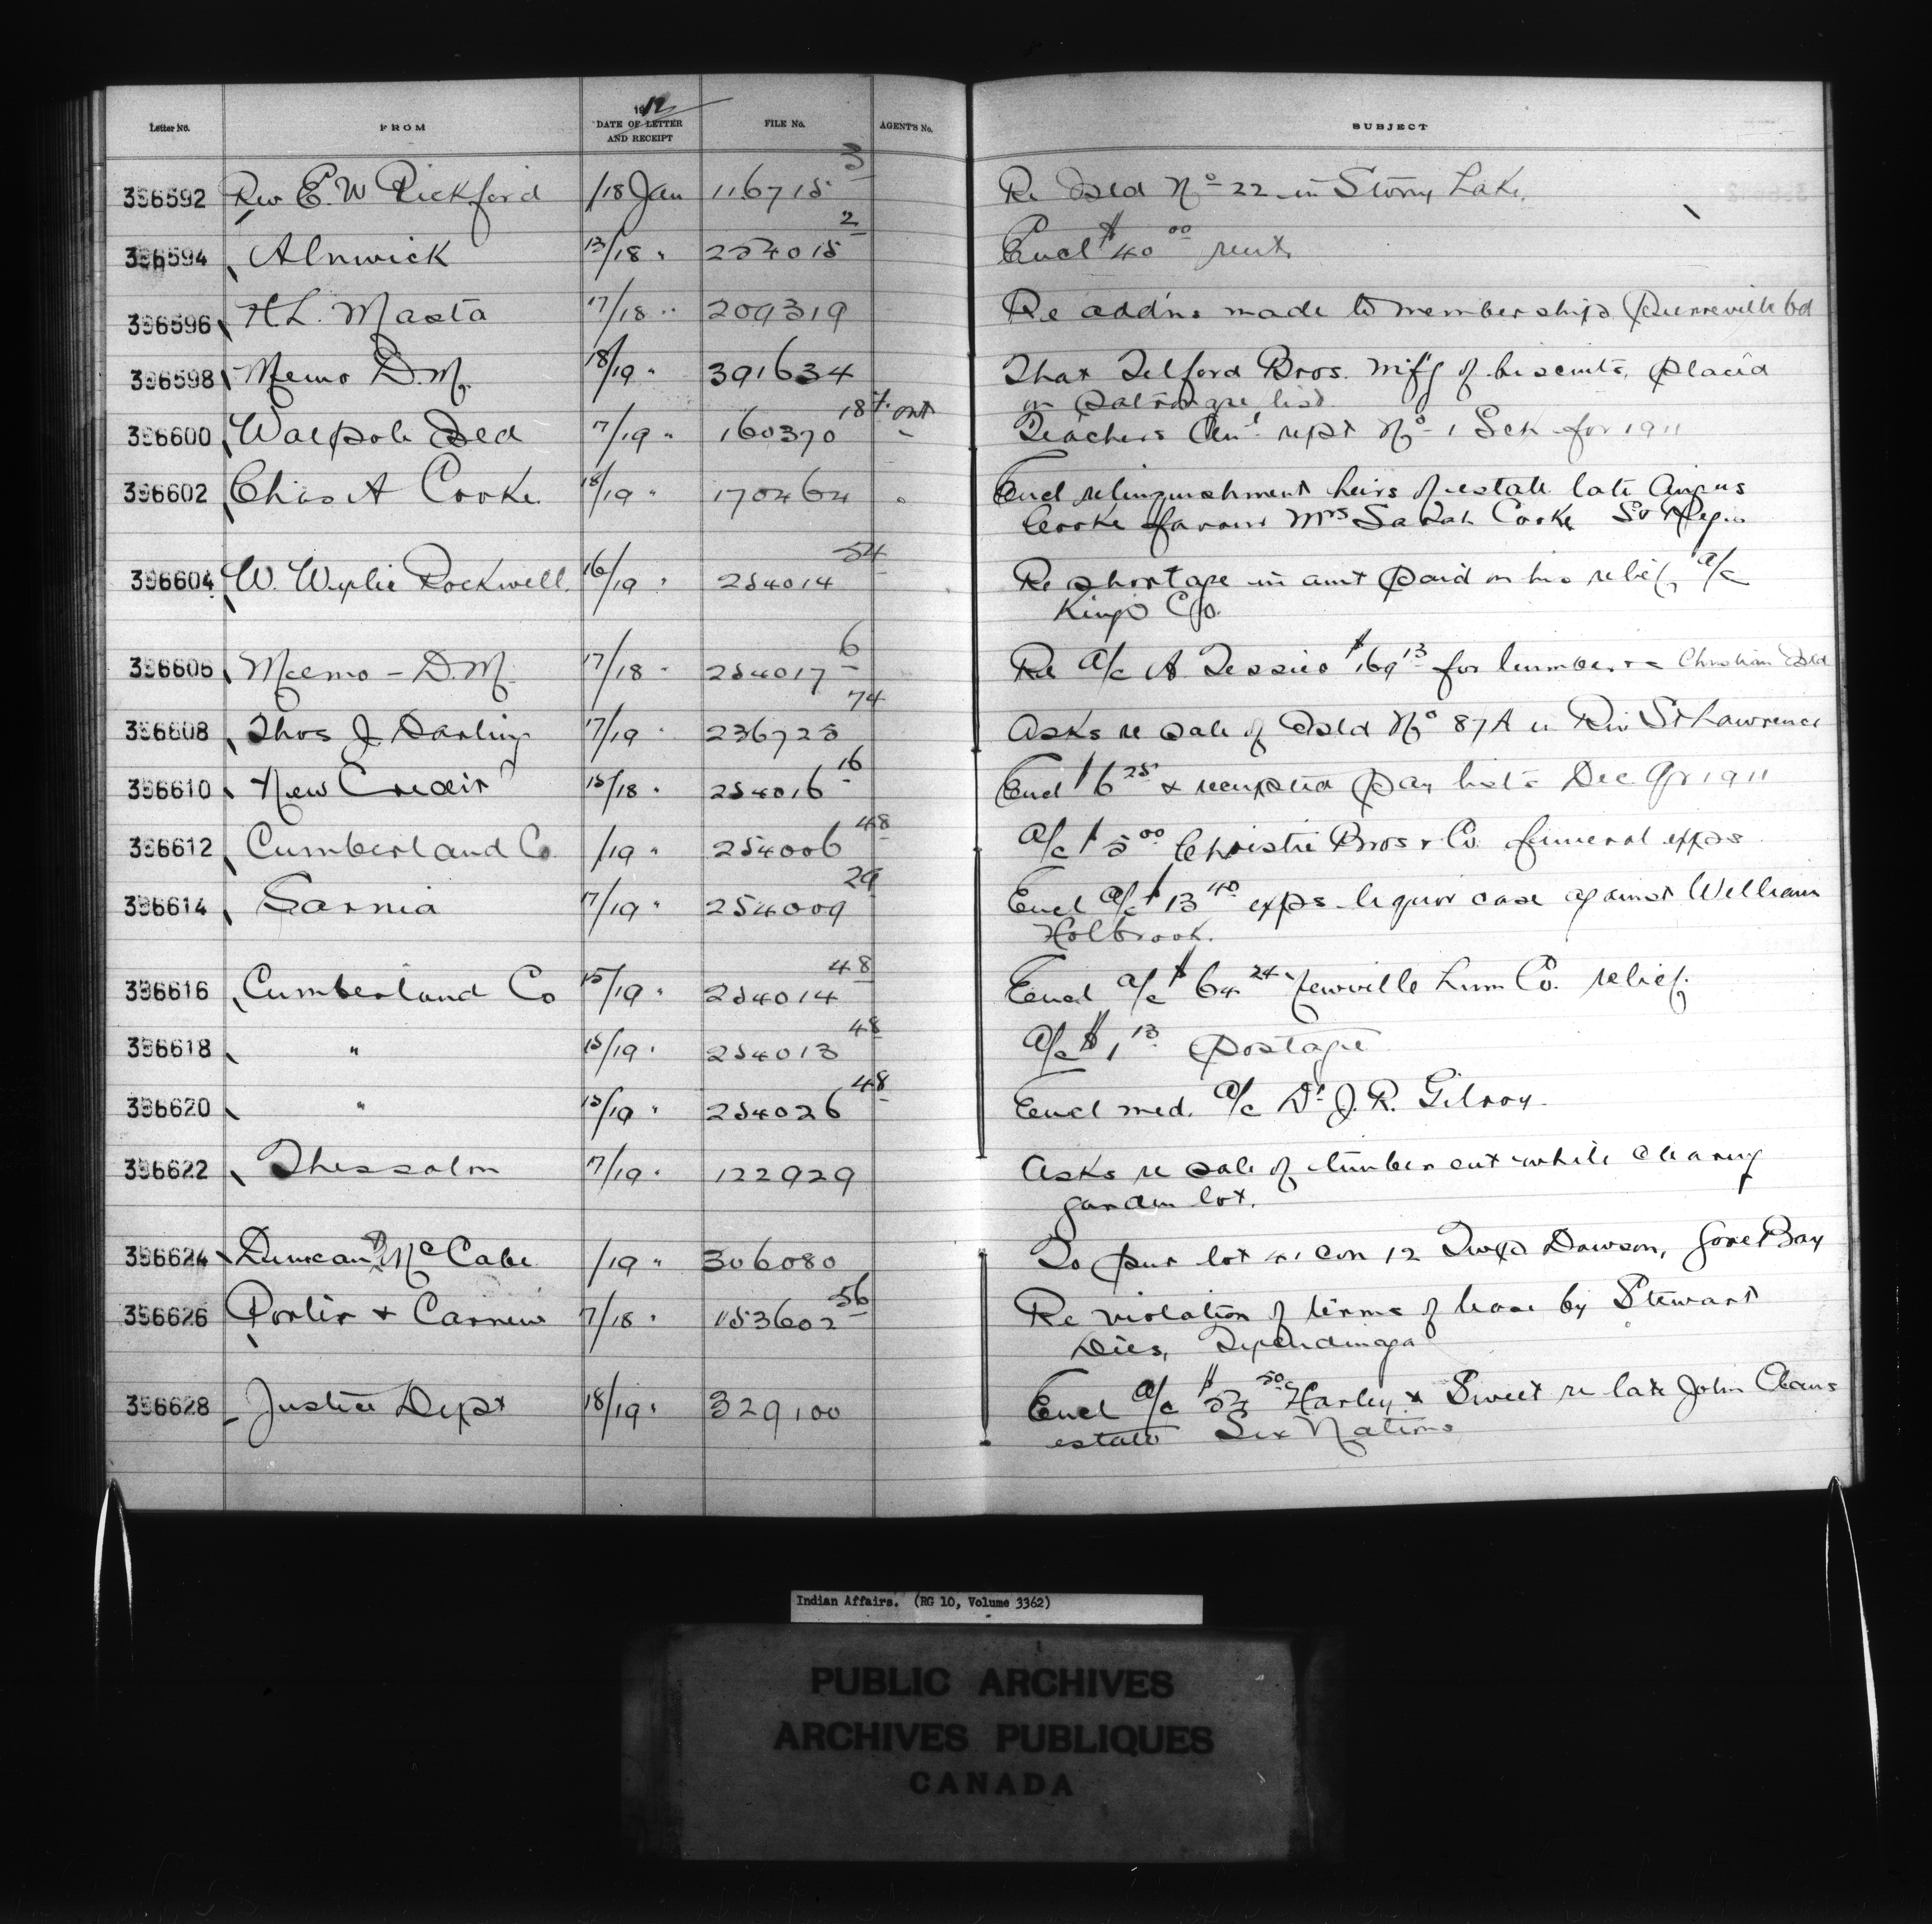 1912
Letter No. FROM DATE OF LETTER AND RECEIPT FILE No. AGENT'S No. SUBJECT
396592 Rev E. W Pickford /18 Jan 116715 3 Re Isld No 22 in Stony Lake.
396594 Alnwick 13/18 " 254015 2 Encl $40 00 rent
396596 H L. Masta 17/18 " 209319 Re addns made to membership Pierreville bd
396598 Memo D.M. 18/19 " 391634 That Telford Bros. mf'g of biscuits, placed
on patronage list
396600 Walpole Isld 17/19 " 160370 18 pt. ont Teachers An'l rept No 1 Sch for 1911
396602 Chas A Cooke 18/19 " 170464 Encl relinquishment heirs of estate late Angus
Cooke favour Mrs Sarah Cooke St Regis
396604 W. Wylie Rockwell. 16/19 " 254014 54 Re shortage in amt paid on his relief a/c
Kings Co.
396606 Memo - D.M. 17/18 " 254017 6 Re a/c A. Tessier $169 13 for lumber re Christian Isld
396608 Thos J Darling 17/19 " 236725 74 Asks re sale of Isld No 87A in Riv St Lawrence
396610 New Credit 15/18 " 254016 16 Encl $6 25 & receipted pay lists Dec Qr 1911
396612 Cumberland Co /19 " 254006 48 a/c $5 00 Christie Bros & Co. funeral exps
396614 Sarnia 17/19 " 254009 29 Encl a/c $13 40 exps liquor case against William
Holbrook.
396616 Cumberland Co 15/19 " 254014 48 Encl a/c $64 24 Newville Lum Co. relief.
396618 " 15/19 " 254013 48 a/c $1 13 postage
396620 " 15/19 " 254026 48 Encl med. a/c Dr J. R. Gilroy
396622 Thessalon 17/19 " 122929 Asks re sale of timber cut while clearing
garden lot.
396624 Duncan McCabe /19 " 306080 To pur lot 41 con 12 Twp Dawson, Gore Bay
396626 Porter & Carnew 17/18 " 153602 56 Re violation of terms of lease by Stewart
Dies, Tyendinaga
396628 Justice Dept 18/19 " 329,100 Encl a/c $ 50 Harley & Sweet re late John Claus
estate Six Nations
Indian Affairs. (RG 10, Volume 3362)
PUBLIC ARCHIVES
ARCHIVES PUBLIQUES
CANADA